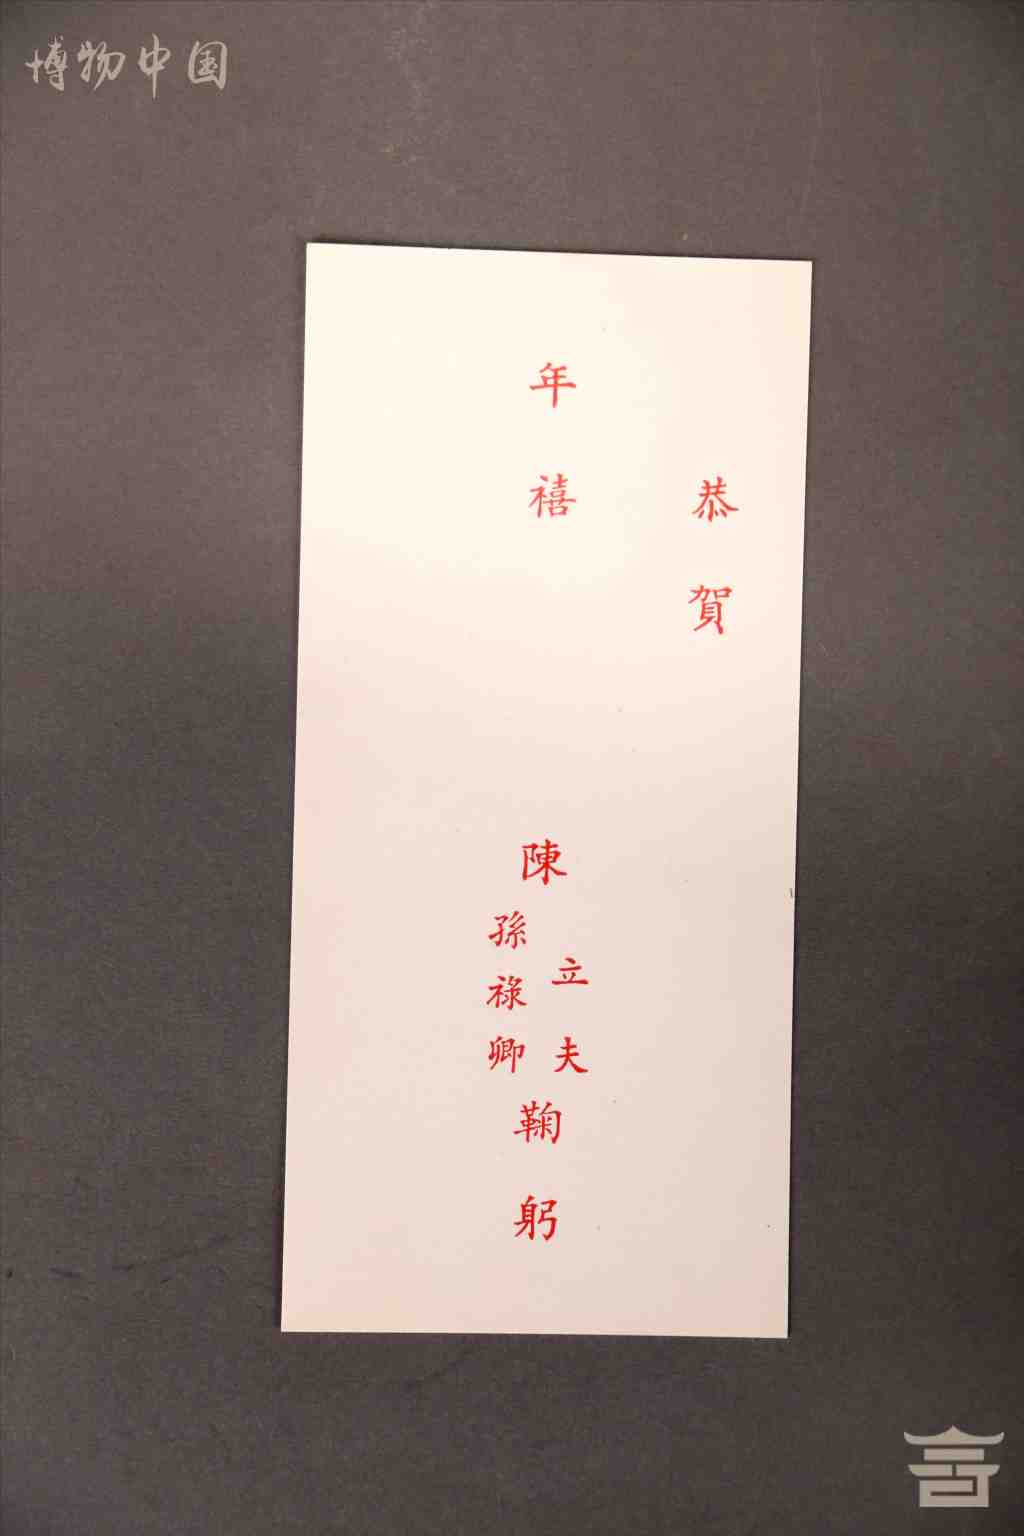 博物中国
恭賀
年禧
陳
立夫
孫祿卿
鞠躬